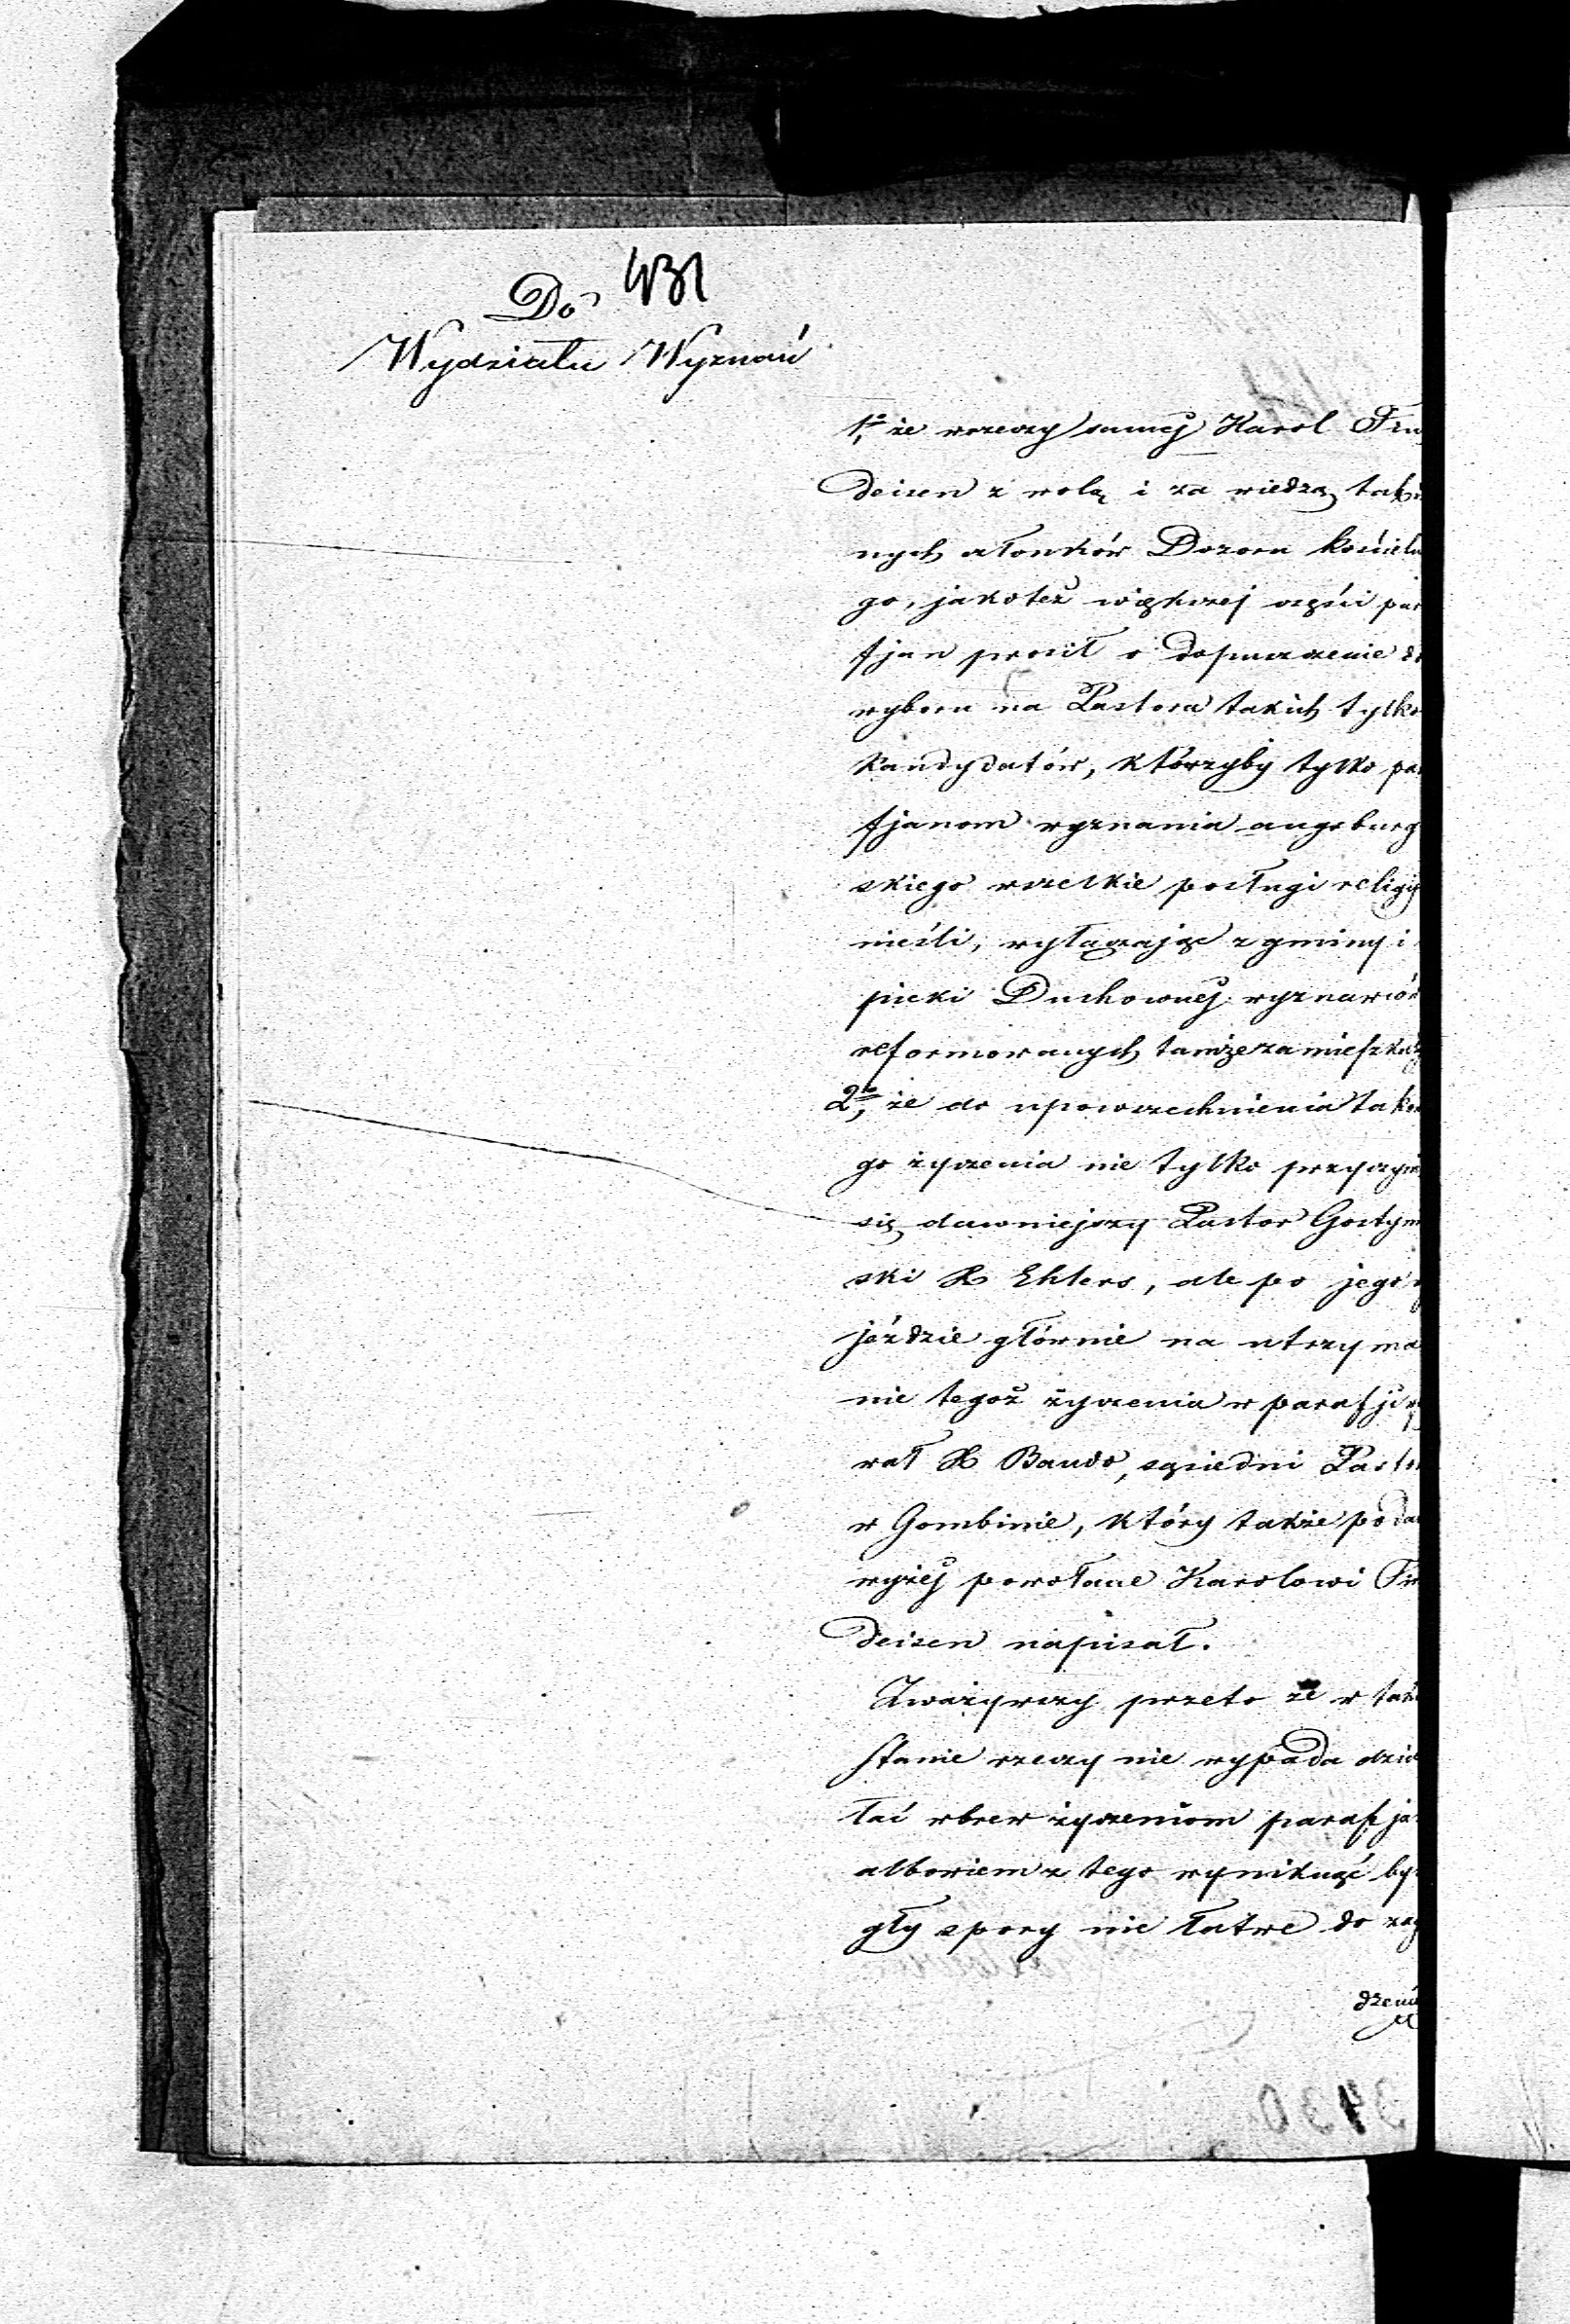 431
Do
Wydziału Wyznań
1° że wrzeczy samej Karol Fin
deisen z wolą i za wiedzą tak
nych członków Dozoru kościeln
go, jakoteż większej części par
fjan prosił o dopuszczenie do
wyboru na Pastora takich tylko
Kandydatów, którzyby tylko par
fjanom wyznania augsburg
skiego wszelkie posługi religij
nieśli, wyłączając z gminy i
pieki Duchownej wyznawców
reformowanych tamże zamieszkał
2do, że do upowszechnienia take
go życzenia nie tylko przyczyni
się dawniejszy Pastor Gostyń
ski X Ehlers, ale po jego
jeździe głównie na utrzyma
nie tegoż życzenia w parafji
wał X Bando, sąsiedni Pasto
w Gombinie, który także poda
wyżej powołane Karolowi Fin
deisen napisał.
Zważywszy przeto że w tak
stanie rzeczy nie wypada dzia
łać wbrew życzeniom parafja
albowiem z tego wyniknąć by
gły spory nie łatwe do zag
dzeni
3430